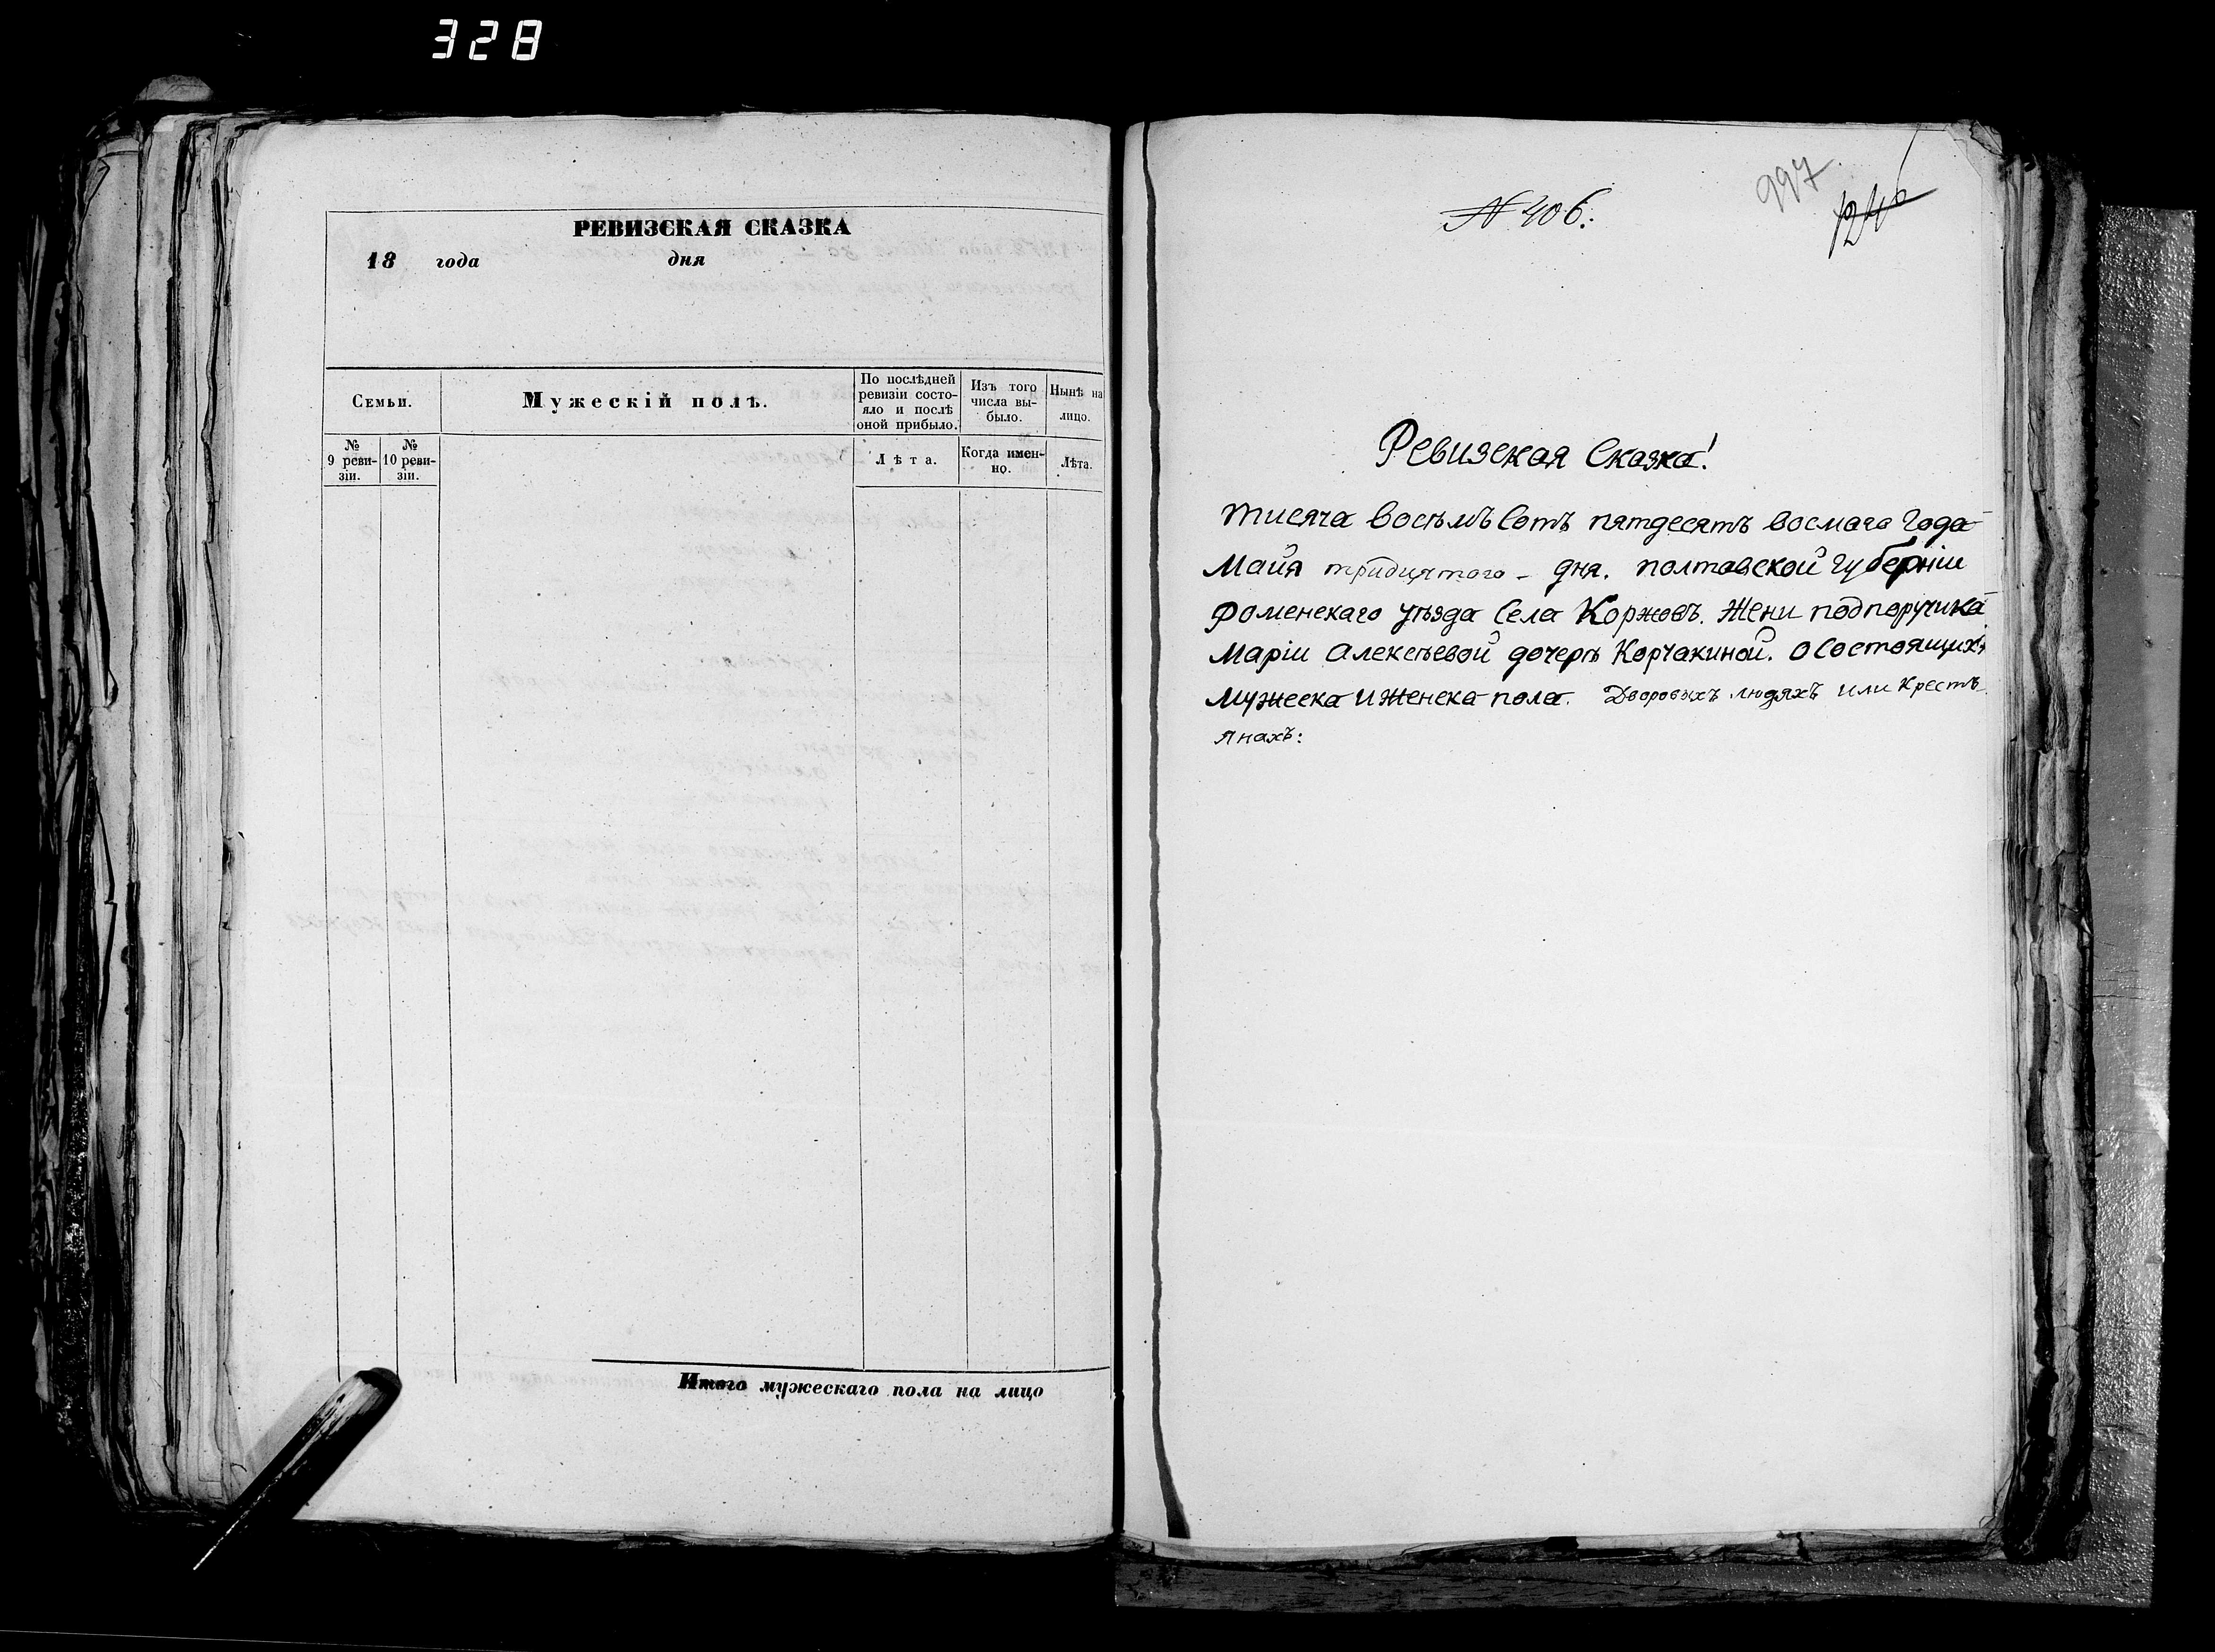 328
РЕВИЗСКАЯ СКАЗКА
18 года дня
Семьи.
Мужескій полъ.
По послѣдней ревизіи состо-
яло и послѣ
оной прибыло.
Изъ того
числа вы-
было.
Нынѣ на
лицо.
№
9 реви-
зіи.
№
10 реви-
зіи.
Лѣта.
Когда имен-
но.
Лѣта.
Итого мужескаго пола на лицо
№ 406:
997
Ревизская Сказка!
Тисяча восъмъ Сотъ пятдесятъ восмаго Года
Майя тридцятого - дня. полтавской Губерніи
Роменскаго уѣзда Села Коржовъ. Жени подпоручика
Маріи Алексѣевой дочерѣ Корчакиной. О Состоящихъ
Мужеска И Женска пола. Дворовыхъ людяхъ или Крестъ-
янахъ: